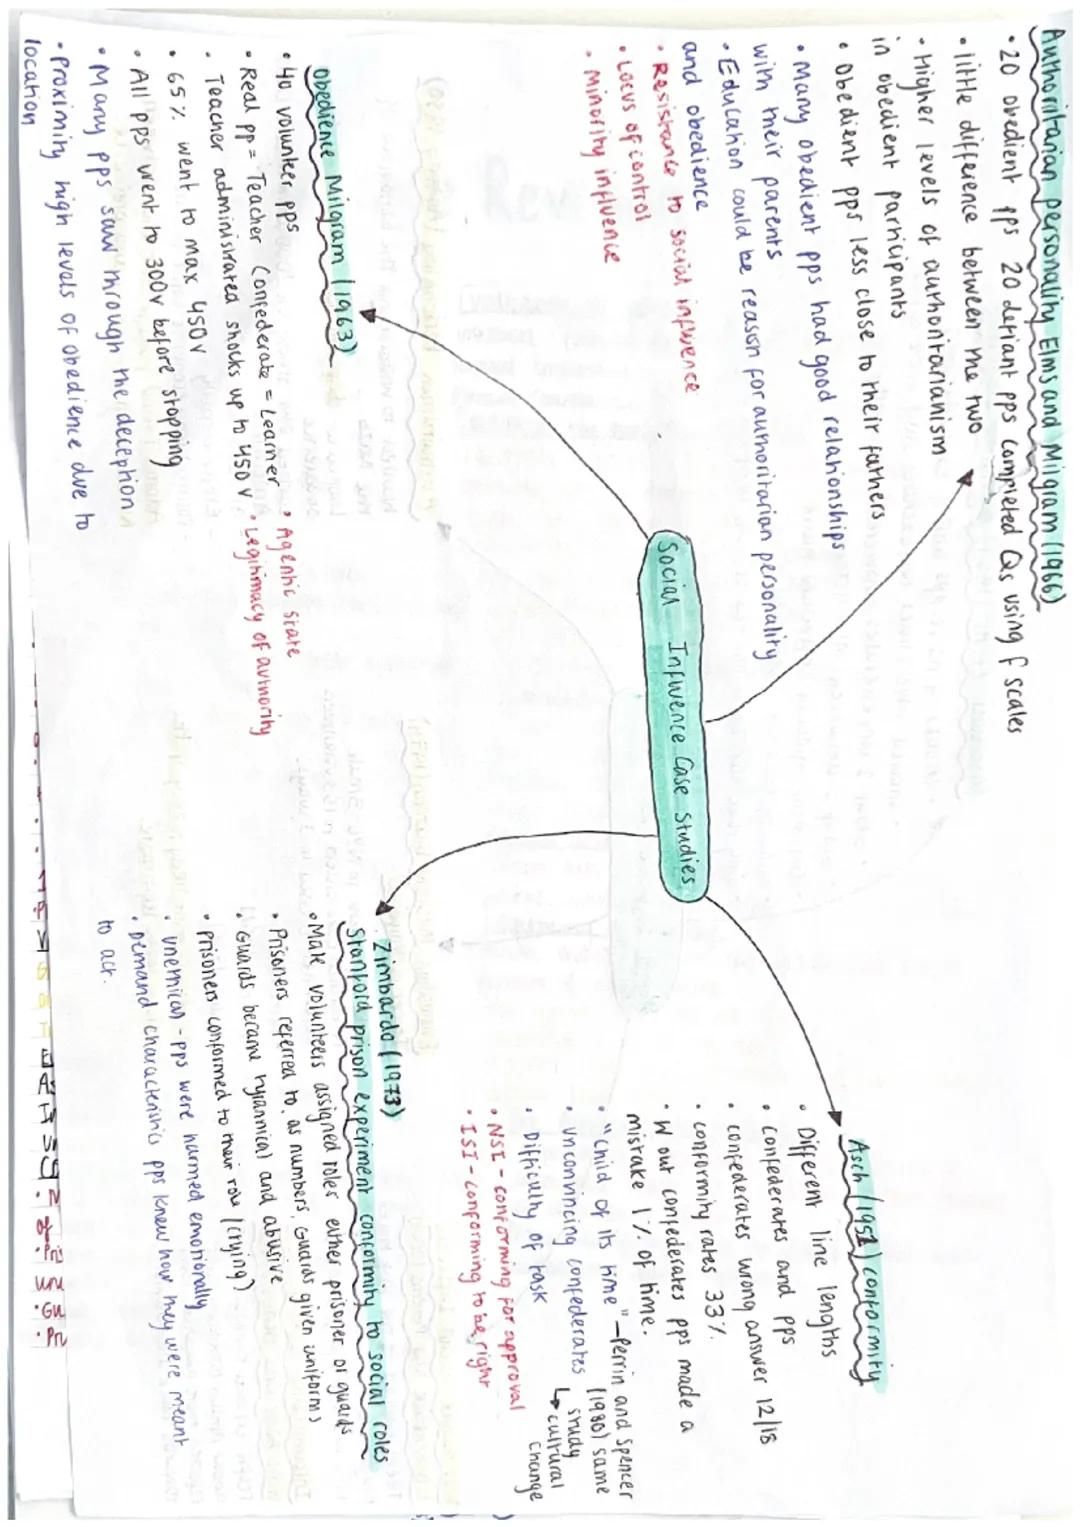 Authoritarian personality Elms and Milgram (1966)
• 20 obedient pps 20 defiant pps completed Qs using f scales
• little difference between the two
• Higher levels of authoritarianism
in obedient participants
• Obedient pps less close to their fathers
• Many obedient pps had good relationships
with their parents
• Education could be reason for authoritarian personality
and obedience
• Resistance to social influence
• Locus of control
• Minority influence
Social Influence Case Studies
Obedience Milgram (1963)
• 40 volunteer pps
• Real pp = Teacher Confederate = Learner
• Teacher administrated shocks up to 450 v
• 65% went to max 450v
• All pps went to 300v before stopping
• Many pps saw through the deception
• proximity high levels of obedience due to
location
• Agentic state
• Legitimacy of authority
Asch (1951) conformity
• Different line lengths
• Confederates and pps
• confederates wrong answer 12/18
• conformity rates 33%
• W out confederates pps made a
mistake 1% of time.
• "Child of its time" - Perrin and Spencer
(1980) same
study
↳ cultural
change
• unconvincing confederates
• Difficulty of task
• NSI - conforming for approval
• ISI - conforming to be right
Zimbardo (1973)
Stanford prison experiment conformity to social roles
• Male volunteers assigned roles either prisoner or guards
• Prisoners referred to as numbers, Guards given uniforms
• Guards became tyrannical and abusive
• Prisoners conformed to their role (crying)
• unethical - pps were harmed emotionally
• Demand characteristics pps knew how they were meant
to act.